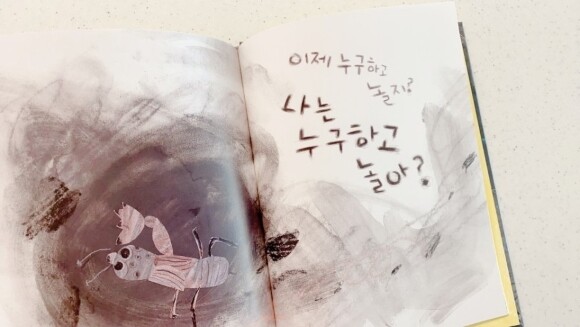 이제 누구하고
놀지?
나는
누구하고
놀아?